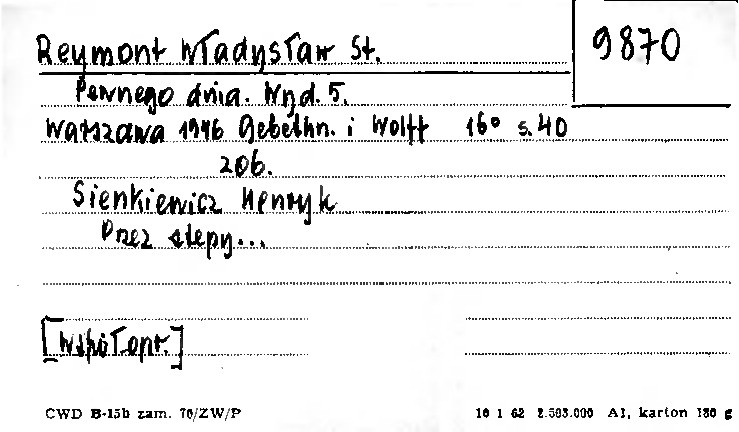 Reymont Władysław St.
9870
Pewnego dnia. Wyd. 5.
Warszawa 1946 Gebethn. i Wolff 16° s. 40
Zob.
Sienkiewicz Henryk
Przez stepy...
[Współopr.]
CWD B-15b zam. 70/ZW/P
10 1 62 2.503.000 A1, karton 180 g